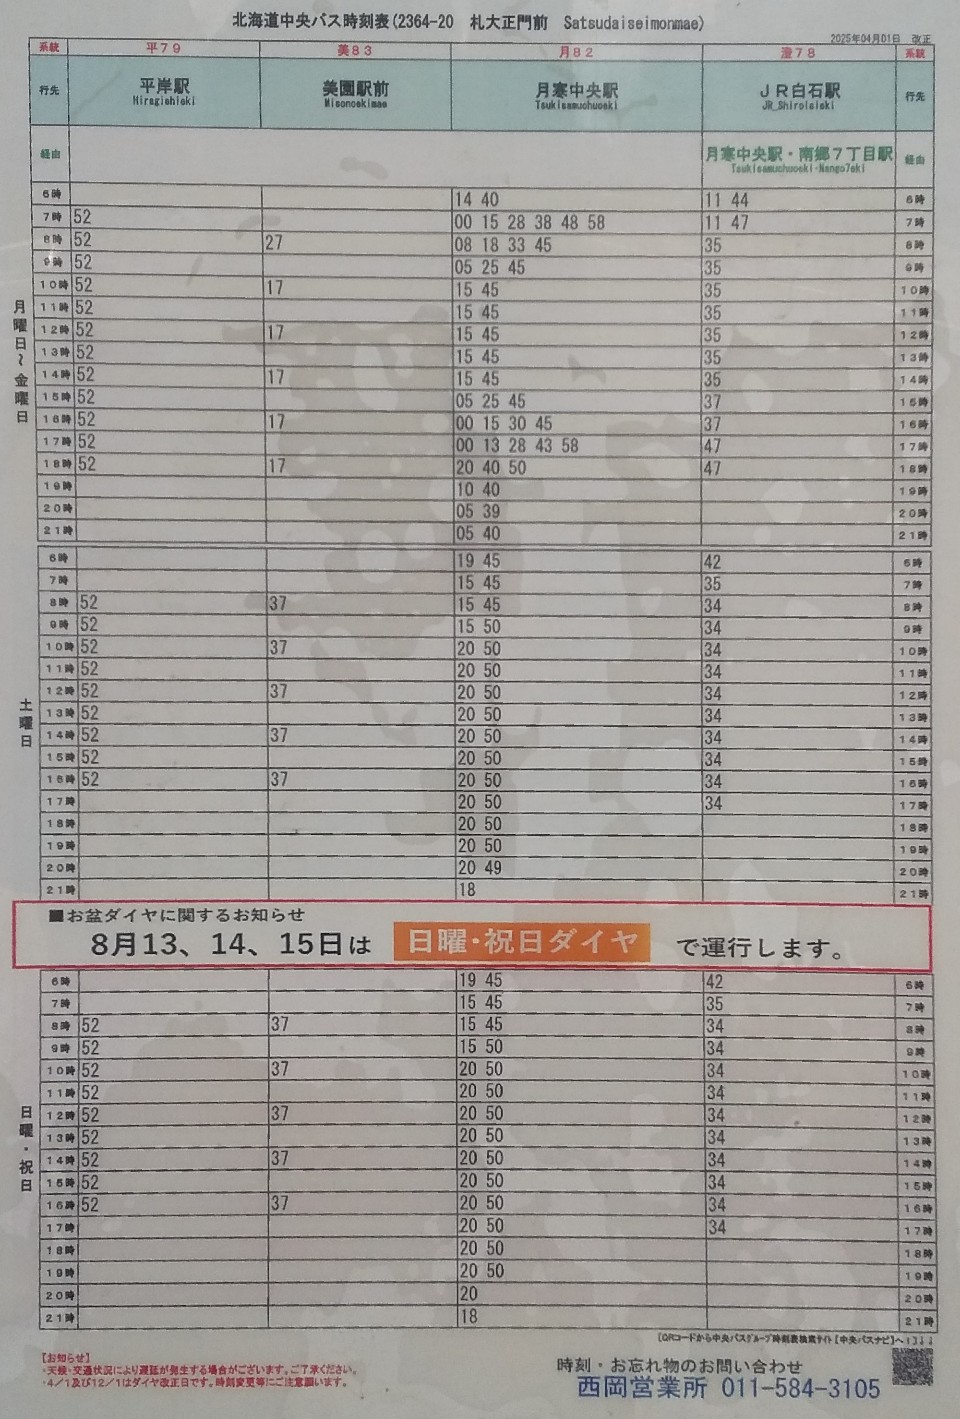 北海道中央バス時刻表(2364-20 札大正門前 Satsudaiseimonmae)
2025年04月01日 改正
系統 平79 美83 月82 澄78 系統
行先 平岸駅 美園駅前 月寒中央駅 JR白石駅 行先
Hiragishieki Misonoekimae Tsukisamuchuoeki JR_Shiroisieki
経由 月寒中央駅・南郷7丁目駅 経由
Tsukisamuchuoeki・Nango7eki
月曜日~金曜日
6時 14 40 11 44 6時
7時 52 00 15 28 38 48 58 11 47 7時
8時 52 27 08 18 33 45 35 8時
9時 52 05 25 45 35 9時
10時 52 17 15 45 35 10時
11時 52 15 45 35 11時
12時 52 17 15 45 35 12時
13時 52 15 45 35 13時
14時 52 17 15 45 35 14時
15時 52 05 25 45 37 15時
16時 52 17 00 15 30 45 37 16時
17時 52 00 13 28 43 58 47 17時
18時 52 17 20 40 50 47 18時
19時 10 40 19時
20時 05 39 20時
21時 05 40 21時
土曜日
6時 19 45 42 6時
7時 15 45 35 7時
8時 52 37 15 45 34 8時
9時 52 15 50 34 9時
10時 52 37 20 50 34 10時
11時 52 20 50 34 11時
12時 52 37 20 50 34 12時
13時 52 20 50 34 13時
14時 52 37 20 50 34 14時
15時 52 20 50 34 15時
16時 52 37 20 50 34 16時
17時 20 50 34 17時
18時 20 50 18時
19時 20 50 19時
20時 20 49 20時
21時 18 21時
■お盆ダイヤに関するお知らせ
8月13、14、15日は 日曜・祝日ダイヤ で運行します。
日曜・祝日
6時 19 45 42 6時
7時 15 45 35 7時
8時 52 37 15 45 34 8時
9時 52 15 50 34 9時
10時 52 37 20 50 34 10時
11時 52 20 50 34 11時
12時 52 37 20 50 34 12時
13時 52 20 50 34 13時
14時 52 37 20 50 34 14時
15時 52 20 50 34 15時
16時 52 37 20 50 34 16時
17時 20 50 34 17時
18時 20 50 18時
19時 20 50 19時
20時 20 20時
21時 18 21時
[QRコードから中央バスグループ時刻表検索サイト【中央バスナビ】へ↓↓↓
【お知らせ】
・天候・交通状況により遅延が発生する場合がございます。ご了承ください。
・4/1及び12/1はダイヤ改正日です。時刻変更等にご注意願います。
時刻・お忘れ物のお問い合わせ
西岡営業所 011-584-3105